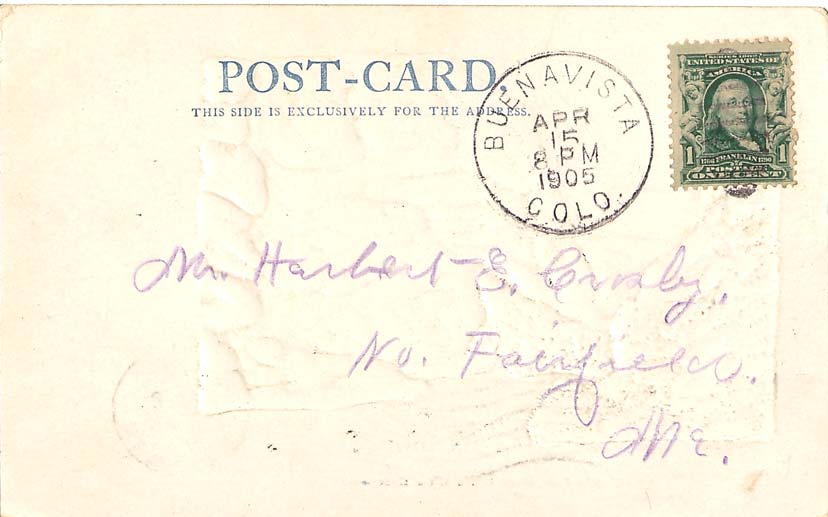 POST-CARD.
THIS SIDE IS EXCLUSIVELY FOR THE ADDRESS.
BUENAVISTA
APR
15
8 PM
1905
COLO.
SERIES 1902
UNITED STATES OF
AMERICA
1 1706 FRANKLIN 1790 1
POSTAGE
ONE CENT
Mr. Harbert E. Crosby,
No. Fairfield.
Me.